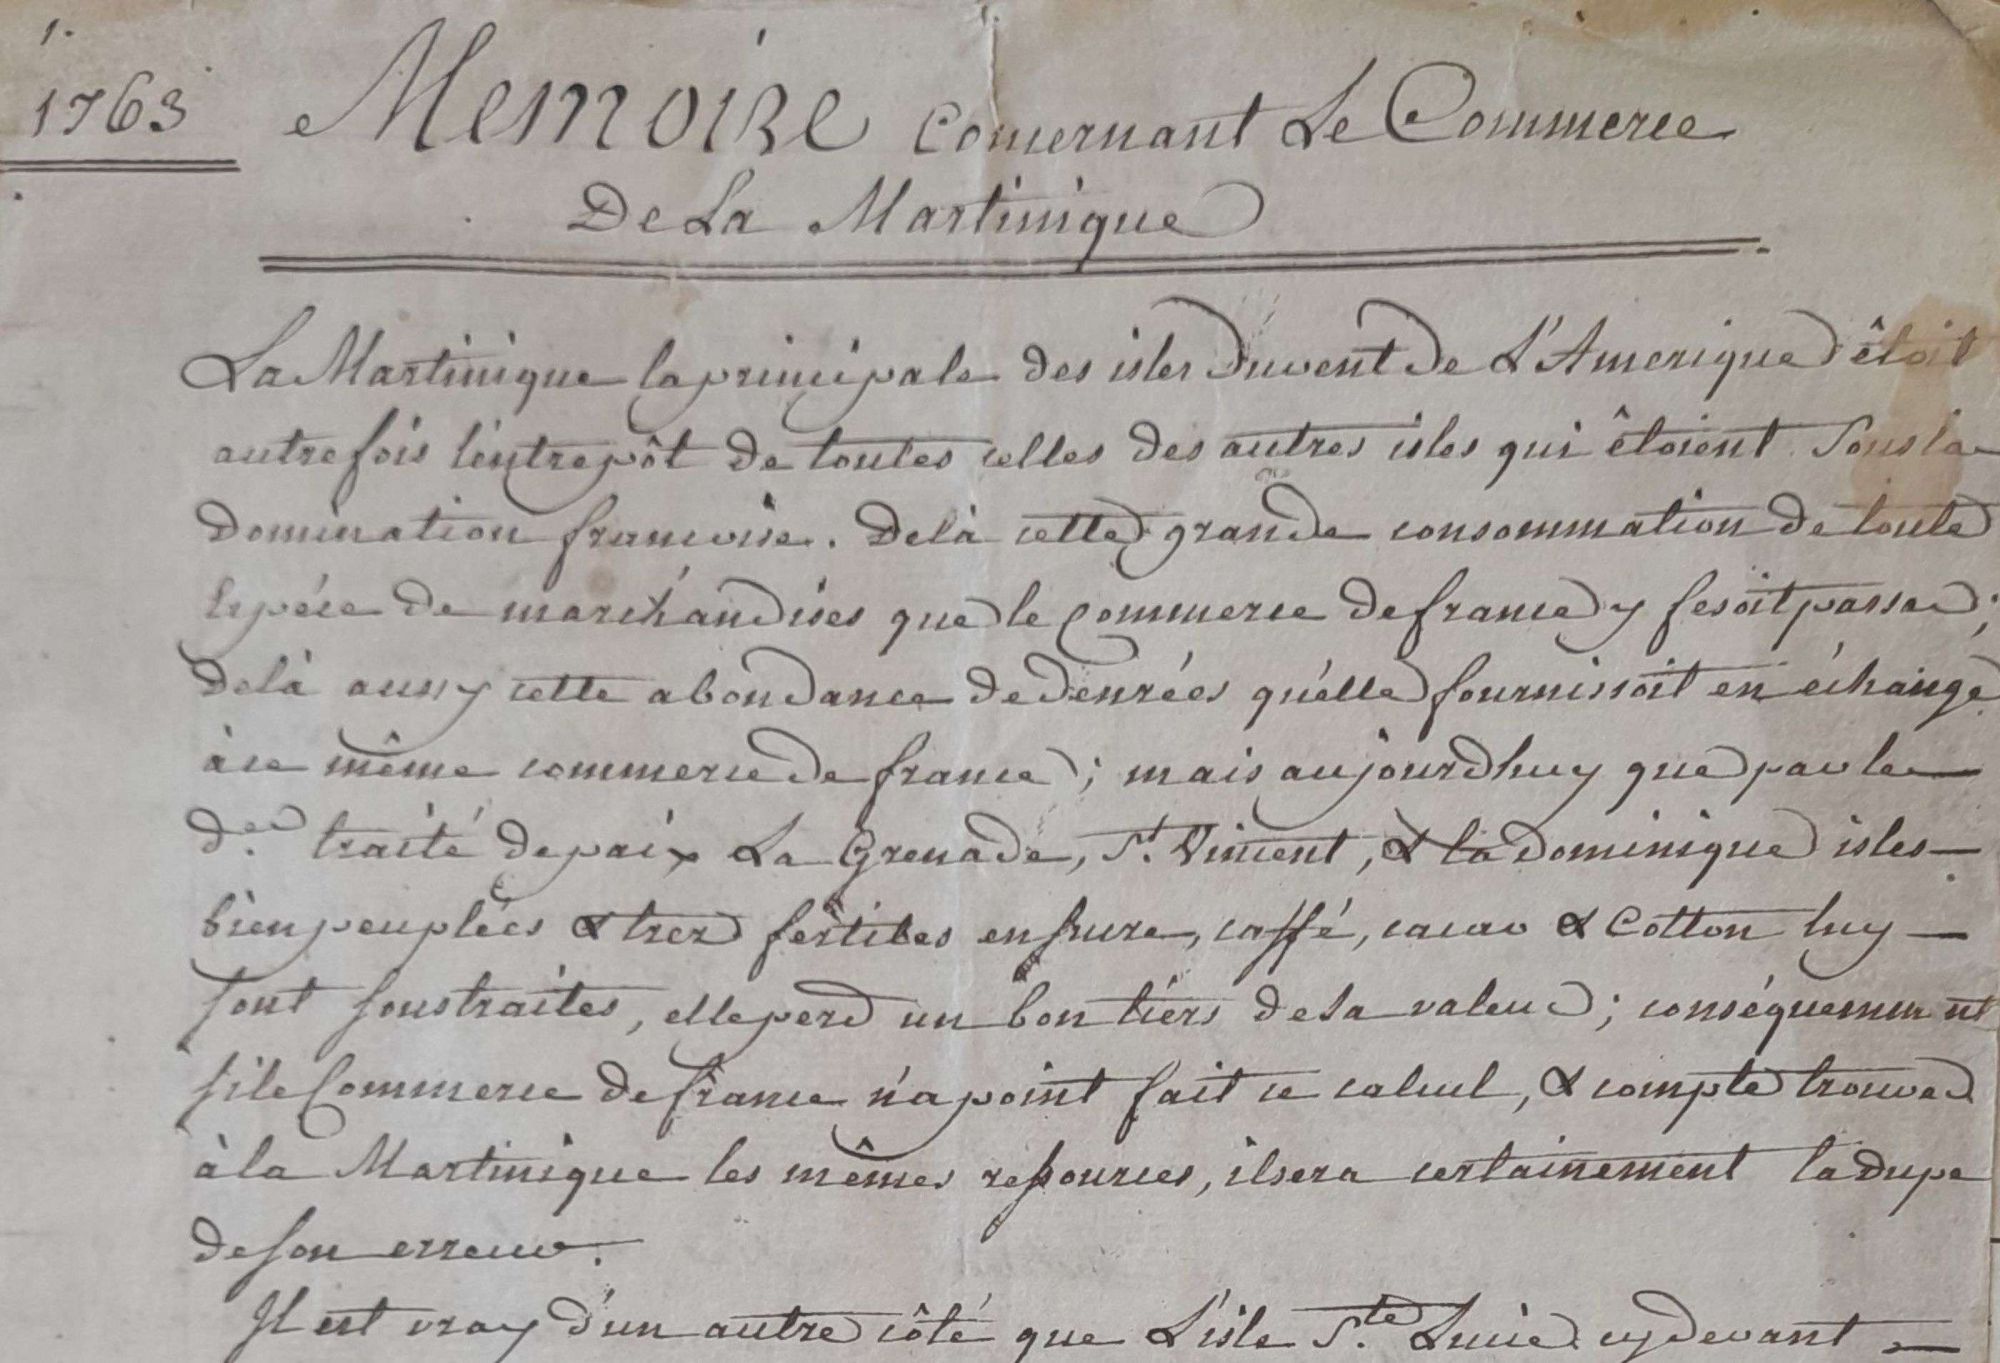 1.
1763
Memoire Concernant Le Commerce
De La Martinique
La Martinique la principale des isles du vent de L'Amerique étoit
autrefois l'entrepôt de toutes celles des autres isles qui êtoient sous la
domination francoise. De là cette grande consommation de toute
espéce de marchandises que le Commerce de france y fesoit passer;
de là aussy cette abondance de denrées qu'elle fournissoit en échange
à ce même commerce de france; mais aujourdhuy que par le
d.er traité de paix La Grenade, St. Vincent, & la Dominique isles
bien peuplées & trez fertiles en sucre, caffé, cacao & Cotton luy
sont soustraites, elle perd un bon tiérs de sa valeur; conséquemment
si le Commerce de france n'a point fait ce calcul, & compte trouver
à la Martinique les mêmes ressources, il sera certainement la dupe
de son erreur.
Il est vray d'un autre côté que L'isle Ste. Lucie cy devant